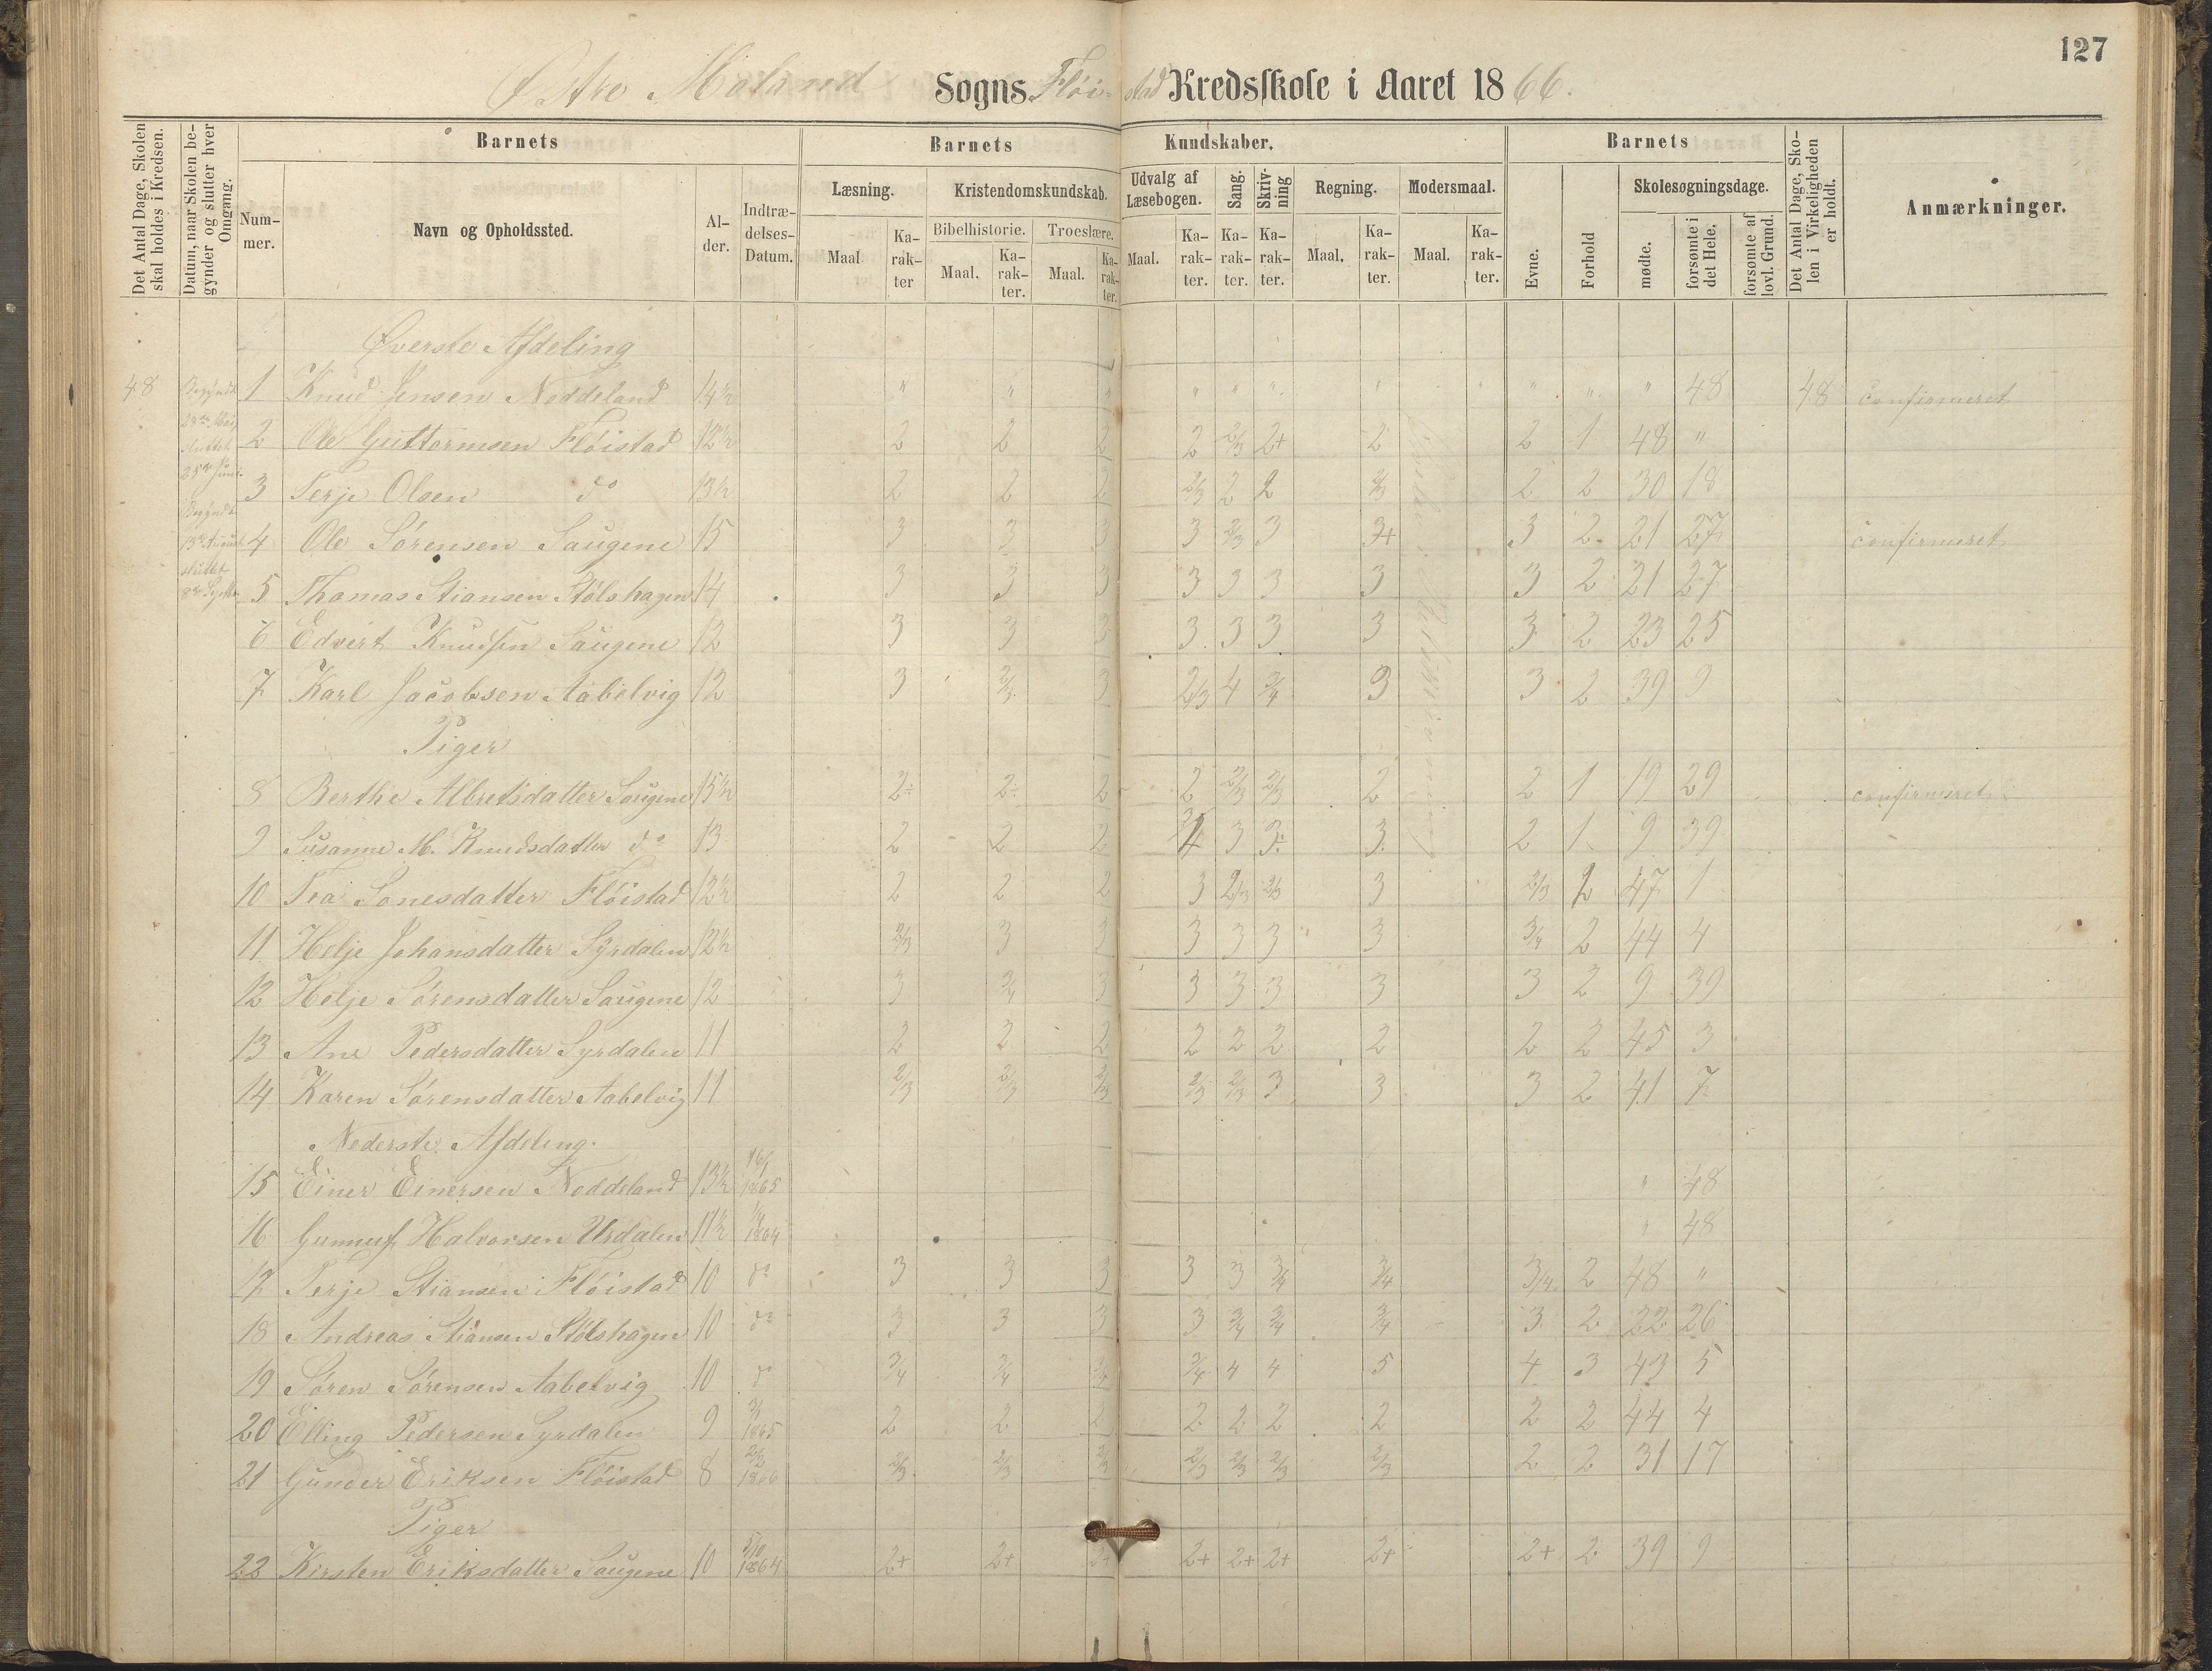 127
Østre Moland Sogns Flöistad Kredsskole i Aaret 1866.
Det Antal Dage, Skolen skal holdes i Kredsen.
Datum, naar Skolen begynder og slutter hver Omgang.
Barnets
Nummer.
Navn og Opholdssted.
Alder.
Indtrædelses-Datum.
Barnets Kundskaber.
Læsning.
Maal
Karakter
Kristendomskundskab.
Bibelhistorie.
Maal.
Karakter.
Troeslære.
Maal.
Karakter.
Udvalg af Læsebogen.
Maal.
Karakter.
Sang.
Karakter.
Skrivning
Karakter.
Regning.
Maal.
Karakter.
Modersmaal.
Maal.
Karakter.
Barnets
Evne.
Forhold
Skolesøgningsdage.
mødte.
forsømte i det Hele.
forsømte af lovl. Grund.
Det Antal Dage, Skolen i Virkeligheden er holdt.
Anmærkninger.
Øverste Afdeling
48 Begyndt 1 Knud Jensen Noddeland 14½ " " " " " " " " " " 48 48 confirmeret
28de Mai sluttet 2 Ole Guttormsen Flöistad 12½ 2 2 2 2 2/3 2+ 2 2 1 48 "
25de Juni 3 Terje Olsen do 13½ 2 2 2 2/3 2 2 2/3 2 2 30 18
Begyndt 13de August 4 Ole Sörensen Saugene 15 3 3 3 3 2/3 3 3+ 3 2 21 27 confirmeret
sluttet 5 Thomas Stiansen Stölshagen 14 3 3 3 3 3 3 3 3 2 21 27
6 Edvert Knudsen Saugene 12 3 3 3 3 3 3 3 3 2 23 25
7 Karl Jacobsen Aabelvig 12 3 2/3 3 2/3 4 3/4 3 3 2 39 9
Piger
8 Berthe Albretsdatter Saugene 15½ 2÷ 2÷ 2 2 2/3 2/3 2 2 1 19 29 confirmeret
9 Susanne M. Knudsdatter do 13 2 2 2 3 3÷ 3 2 1 9 39
10 Tea Sonesdatter Flöistad 12½ 2 2 2 3 2/3 2/3 3 2/3 2 47 1
11 Helje Johansdatter Syrdalen 12½ 2/3 3 3 3 3 3 3 3/4 2 44 4
12 Helje Sörensdatter Saugene 12 3 3/4 3 3 3 3 3 3 2 9 39
13 Ane Pedersdatter Syrdalen 11 2 2 2 2 2 2 2 2 2 45 3
14 Karen Sörensdatter Aabelvig 11 2/3 2/3 2/3 2/3 2/3 3 3 3 2 41 7
Nederste Afdeling.
15 Einer Einersen Noddeland 13½ 1865 " 48
16 Gunnuf Halvorsen Urdalen 11½ 1864 " 48
17 Terje Stiansen Flöistad 10 do 3 3 3 3 3 3/4 3/4 3/4 2 48 "
18 Andreas Stiansen Stölshagen 10 do 3 3 3 3 3/4 3/4 3/4 3 2 22 26
19 Sören Sörensen Aabelvig 10 do 3/4 3/4 3/4 3/4 4 4 5 4 3 43 5
20 Elling Pedersen Syrdalen 9 1865 2 2 2 2 2 2 2 2 2 44 4
21 Gunder Eriksen Flöistad 8 1866 2/3 2/3 2/3 2/3 2/3 2/3 2/3 2 2 31 17
Piger
22 Kirsten Eriksdatter Saugene 10 5/10 1864 2+ 2+ 2+ 2+ 2+ 2+ 2+ 2+ 2 39 9